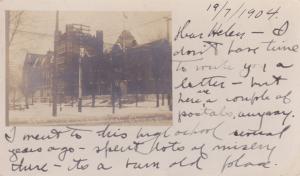 19/7/1904.
Dear Helen - I
don't have time
to write you a
letter - but
here are a couple of
postals, anyway.
I went to this high school several
years ago - spent lots of misery
there - its a rum old place.